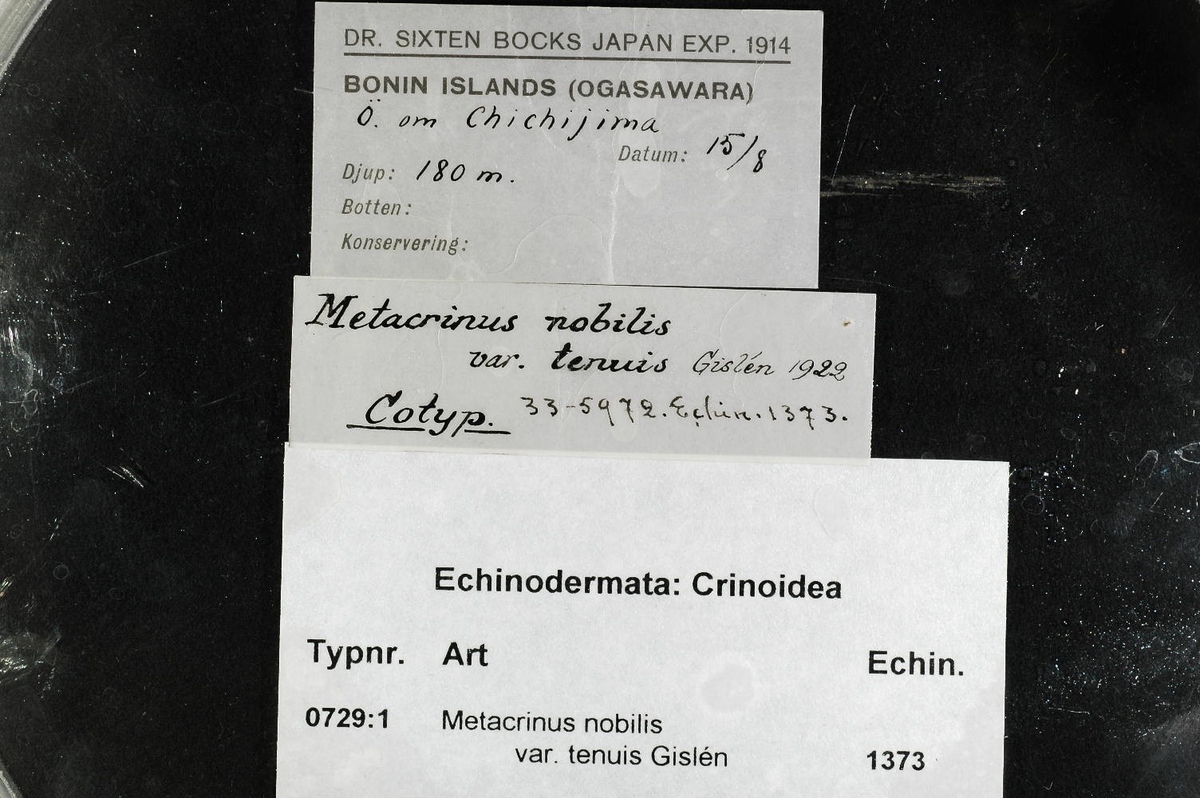 DR. SIXTEN BOCKS JAPAN EXP. 1914
BONIN ISLANDS (OGASAWARA)
Ö. om Chichijima
Datum: 15/8
Djup: 180 m.
Botten:
Konservering:
Metacrinus nobilis
var. tenuis Gislén 1922
Cotyp. 33-5972. Echin. 1373.
Echinodermata: Crinoidea
Typnr. Art Echin.
0729:1 Metacrinus nobilis
var. tenuis Gislén 1373